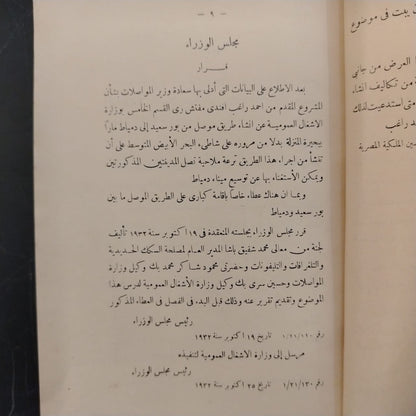 ـ ٩ ـ
مجلس الوزراء
قرار
بعد الاطلاع على البيانات التى أدلى بها سعادة وزير المواصلات بشأن
المشروع المقدم من احمد راغب افندى مفتش رى القسم الخامس بوزارة
الاشغال العمومية عن انشاء طريق موصل من بور سعيد إلى دمياط ماراً
ببحيرة المنزلة بدلا من مروره على شاطىء البحر الأبيض المتوسط على أن
تنشأ من اجراء هذا الطريق ترعة ملاحية تصل المدينتين المذكورتين
ويمكن الأستغناء بها عن توسيع ميناء دمياط
وبما ان هناك عطاء خاصاً باقامة كبارى على الطريق الموصل ما بين
بور سعيد ودمياط
قرر مجلس الوزراء بجلسته المنعقدة فى ١٩ اكتوبر سنة ١٩٣٢ تأليف
لجنة من معالى محمد شفيق باشا المدير العام لمصلحة السكك الحديدية
والتلغرافات والتليفونات وحضرتى محمود شاكر محمد بك وكيل وزارة
المواصلات وحسين سرى بك وكيل وزارة الأشغال العمومية لدرس هذا
الموضوع وتقديم تقرير عنه وذلك قبل البدء فى الفصل فى العطاء المذكور
رئيس مجلس الوزراء
تاريخ ١٩ اكتوبر سنة ١٩٣٢
مرسل إلى وزارة الاشغال العمومية لتنفيذه
رئيس مجلس الوزراء
رقم ١/٢١/١٣٠ تاريخ ٢٥ اكتوبر سنة ١٩٣٢
يبت فى موضوع
العرض من جانبى
من تكاليف انشاء
متى استدعيت لذلك
حمد راغب
ين الملكية المصرية